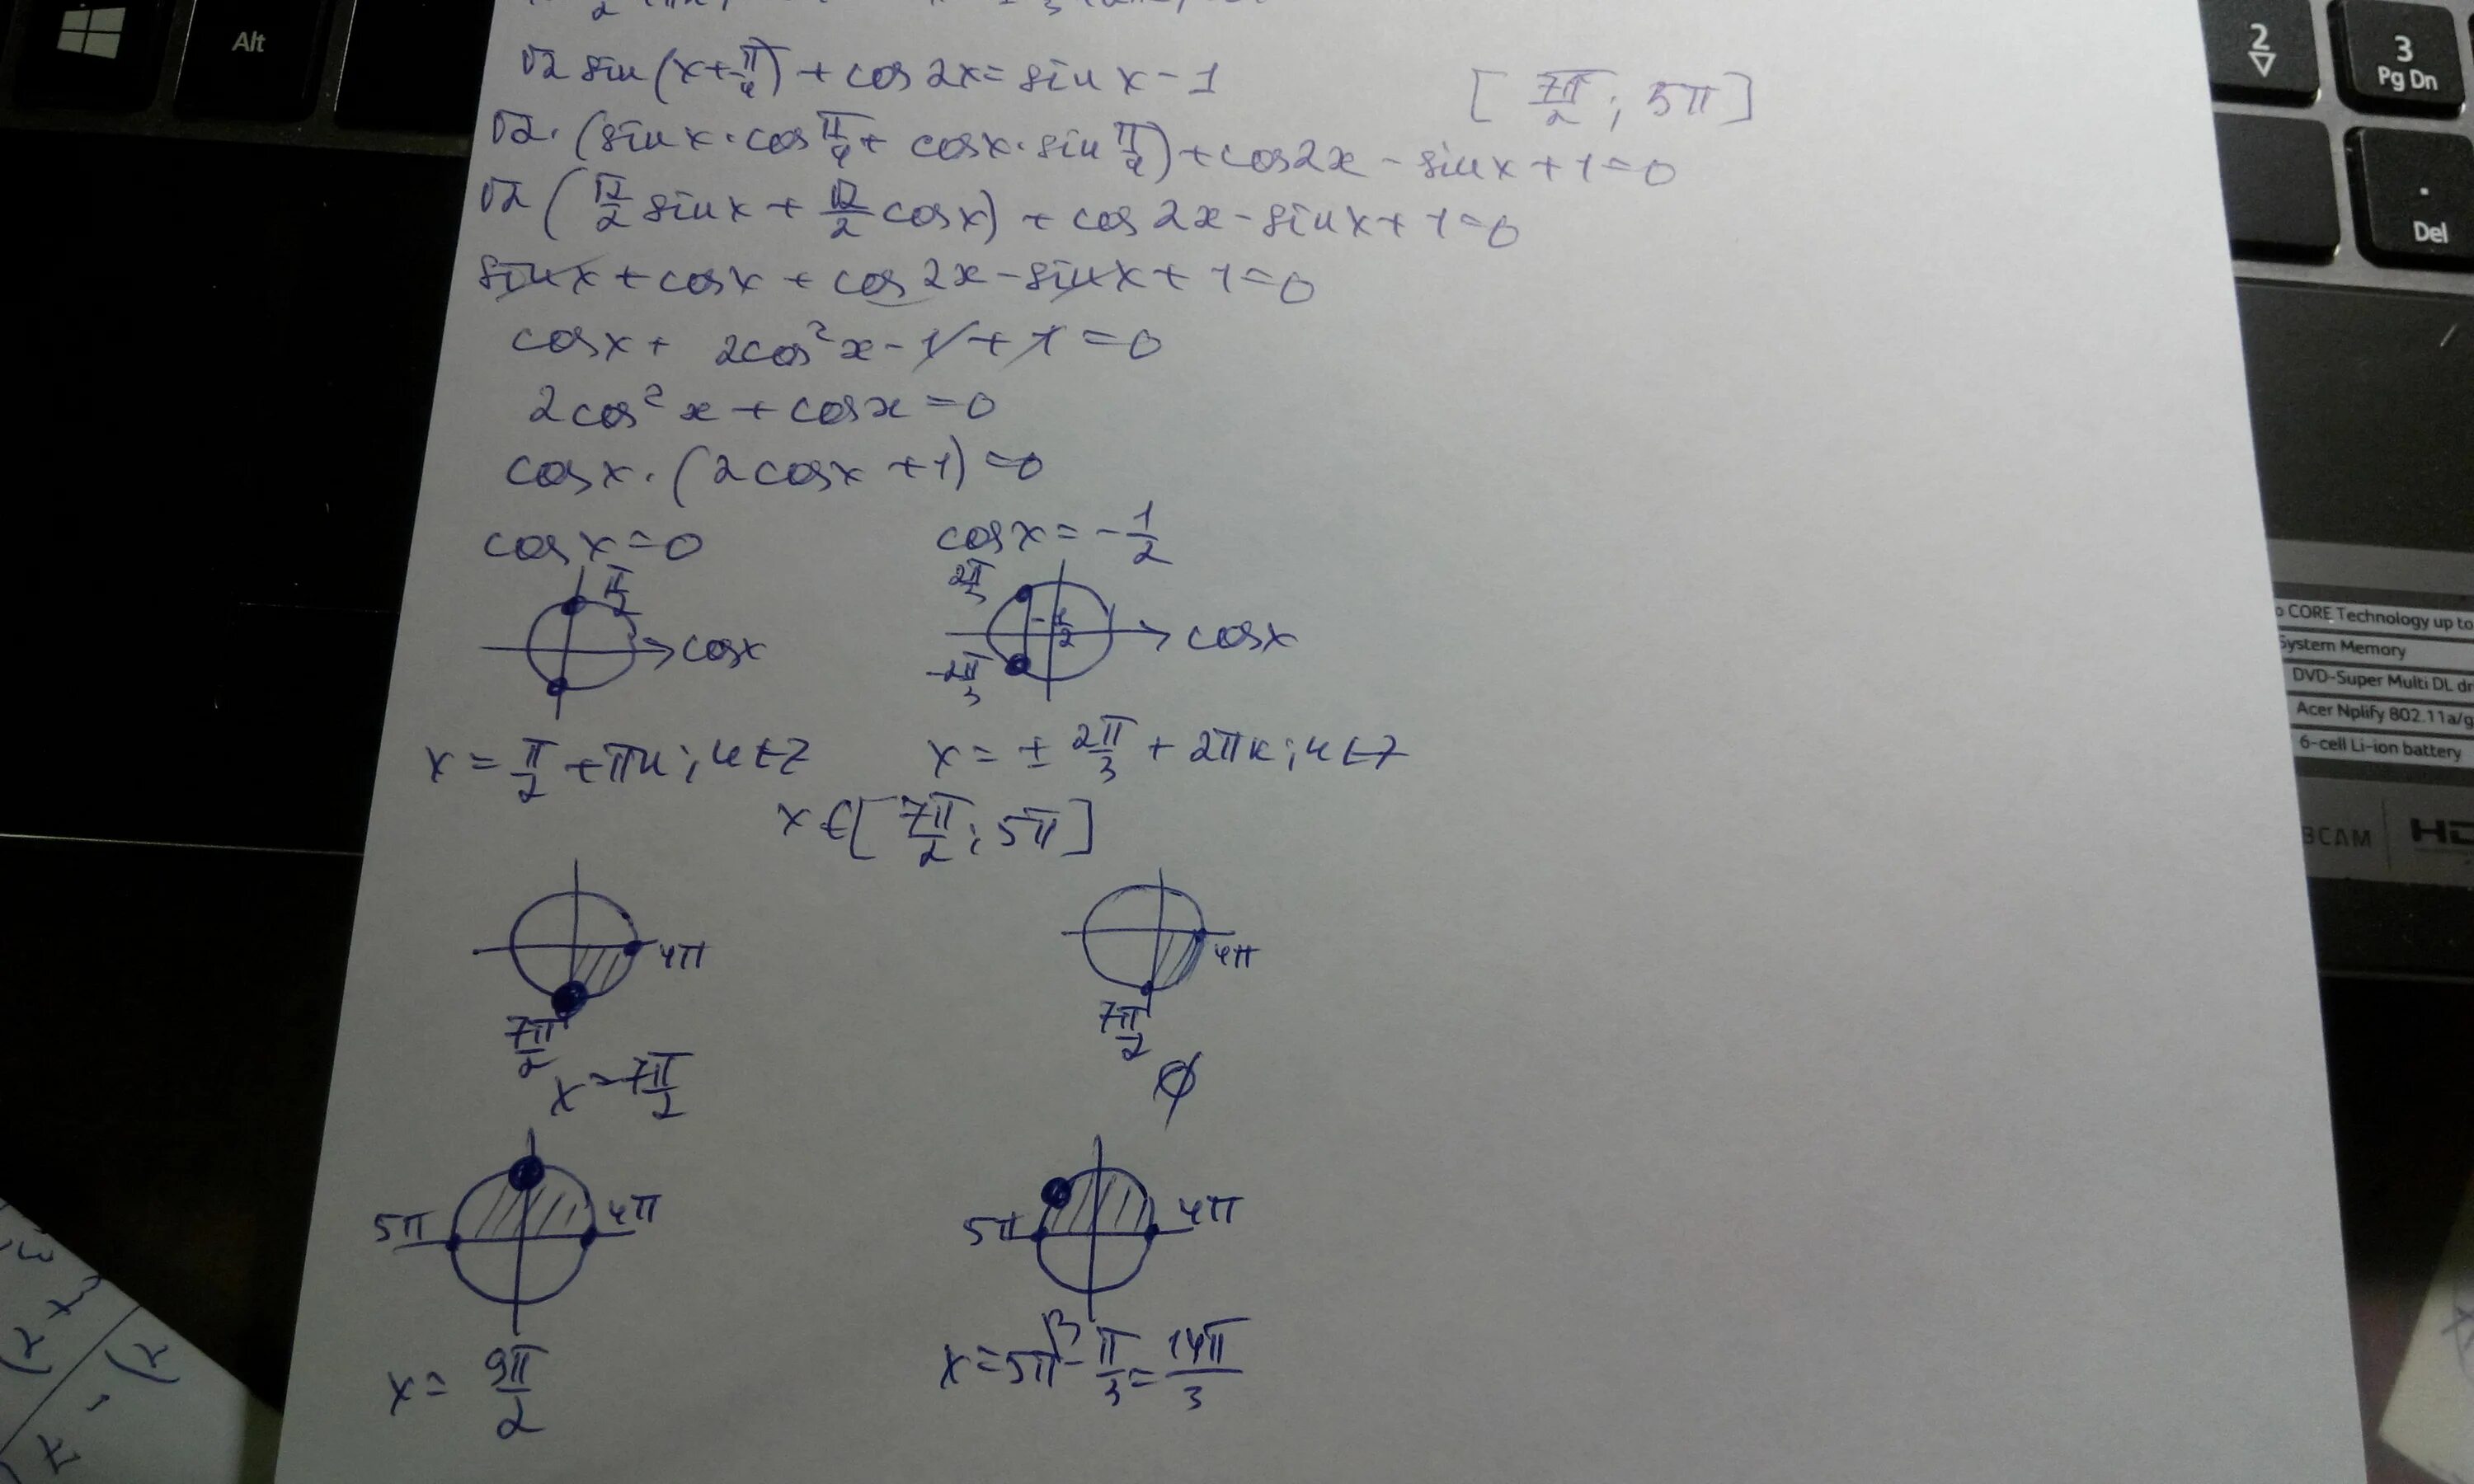 Alt
2
3
Pg Dn
.
Del
√2 sin(x+π/4) + cos 2x = sin x - 1
[7π/2; 5π]
√2·(sin x·cos π/4 + cos x·sin π/4) + cos 2x - sin x + 1 = 0
√2(√2/2 sin x + √2/2 cos x) + cos 2x - sin x + 1 = 0
sin x + cos x + cos 2x - sin x + 1 = 0
cos x + 2cos² x - 1 + 1 = 0
2cos² x + cos x = 0
cos x·(2cos x + 1) = 0
cos x = 0
cos x = -1/2
π/2
cos x
2π/3
-1/2
-2π/3
cos x
x = π/2 + πк; к∈Z
x = ± 2π/3 + 2πк; к∈Z
x ∈ [7π/2; 5π]
4π
7π/2
x = 7π/2
4π
7π/2
∅
5π
4π
x = 9π/2
5π
4π
x = 5π - π/3 = 14π/3
CORE Technology up to
System Memory
DVD-Super Multi DL
Acer Nplify 802.11a/g
6-cell Li-ion battery